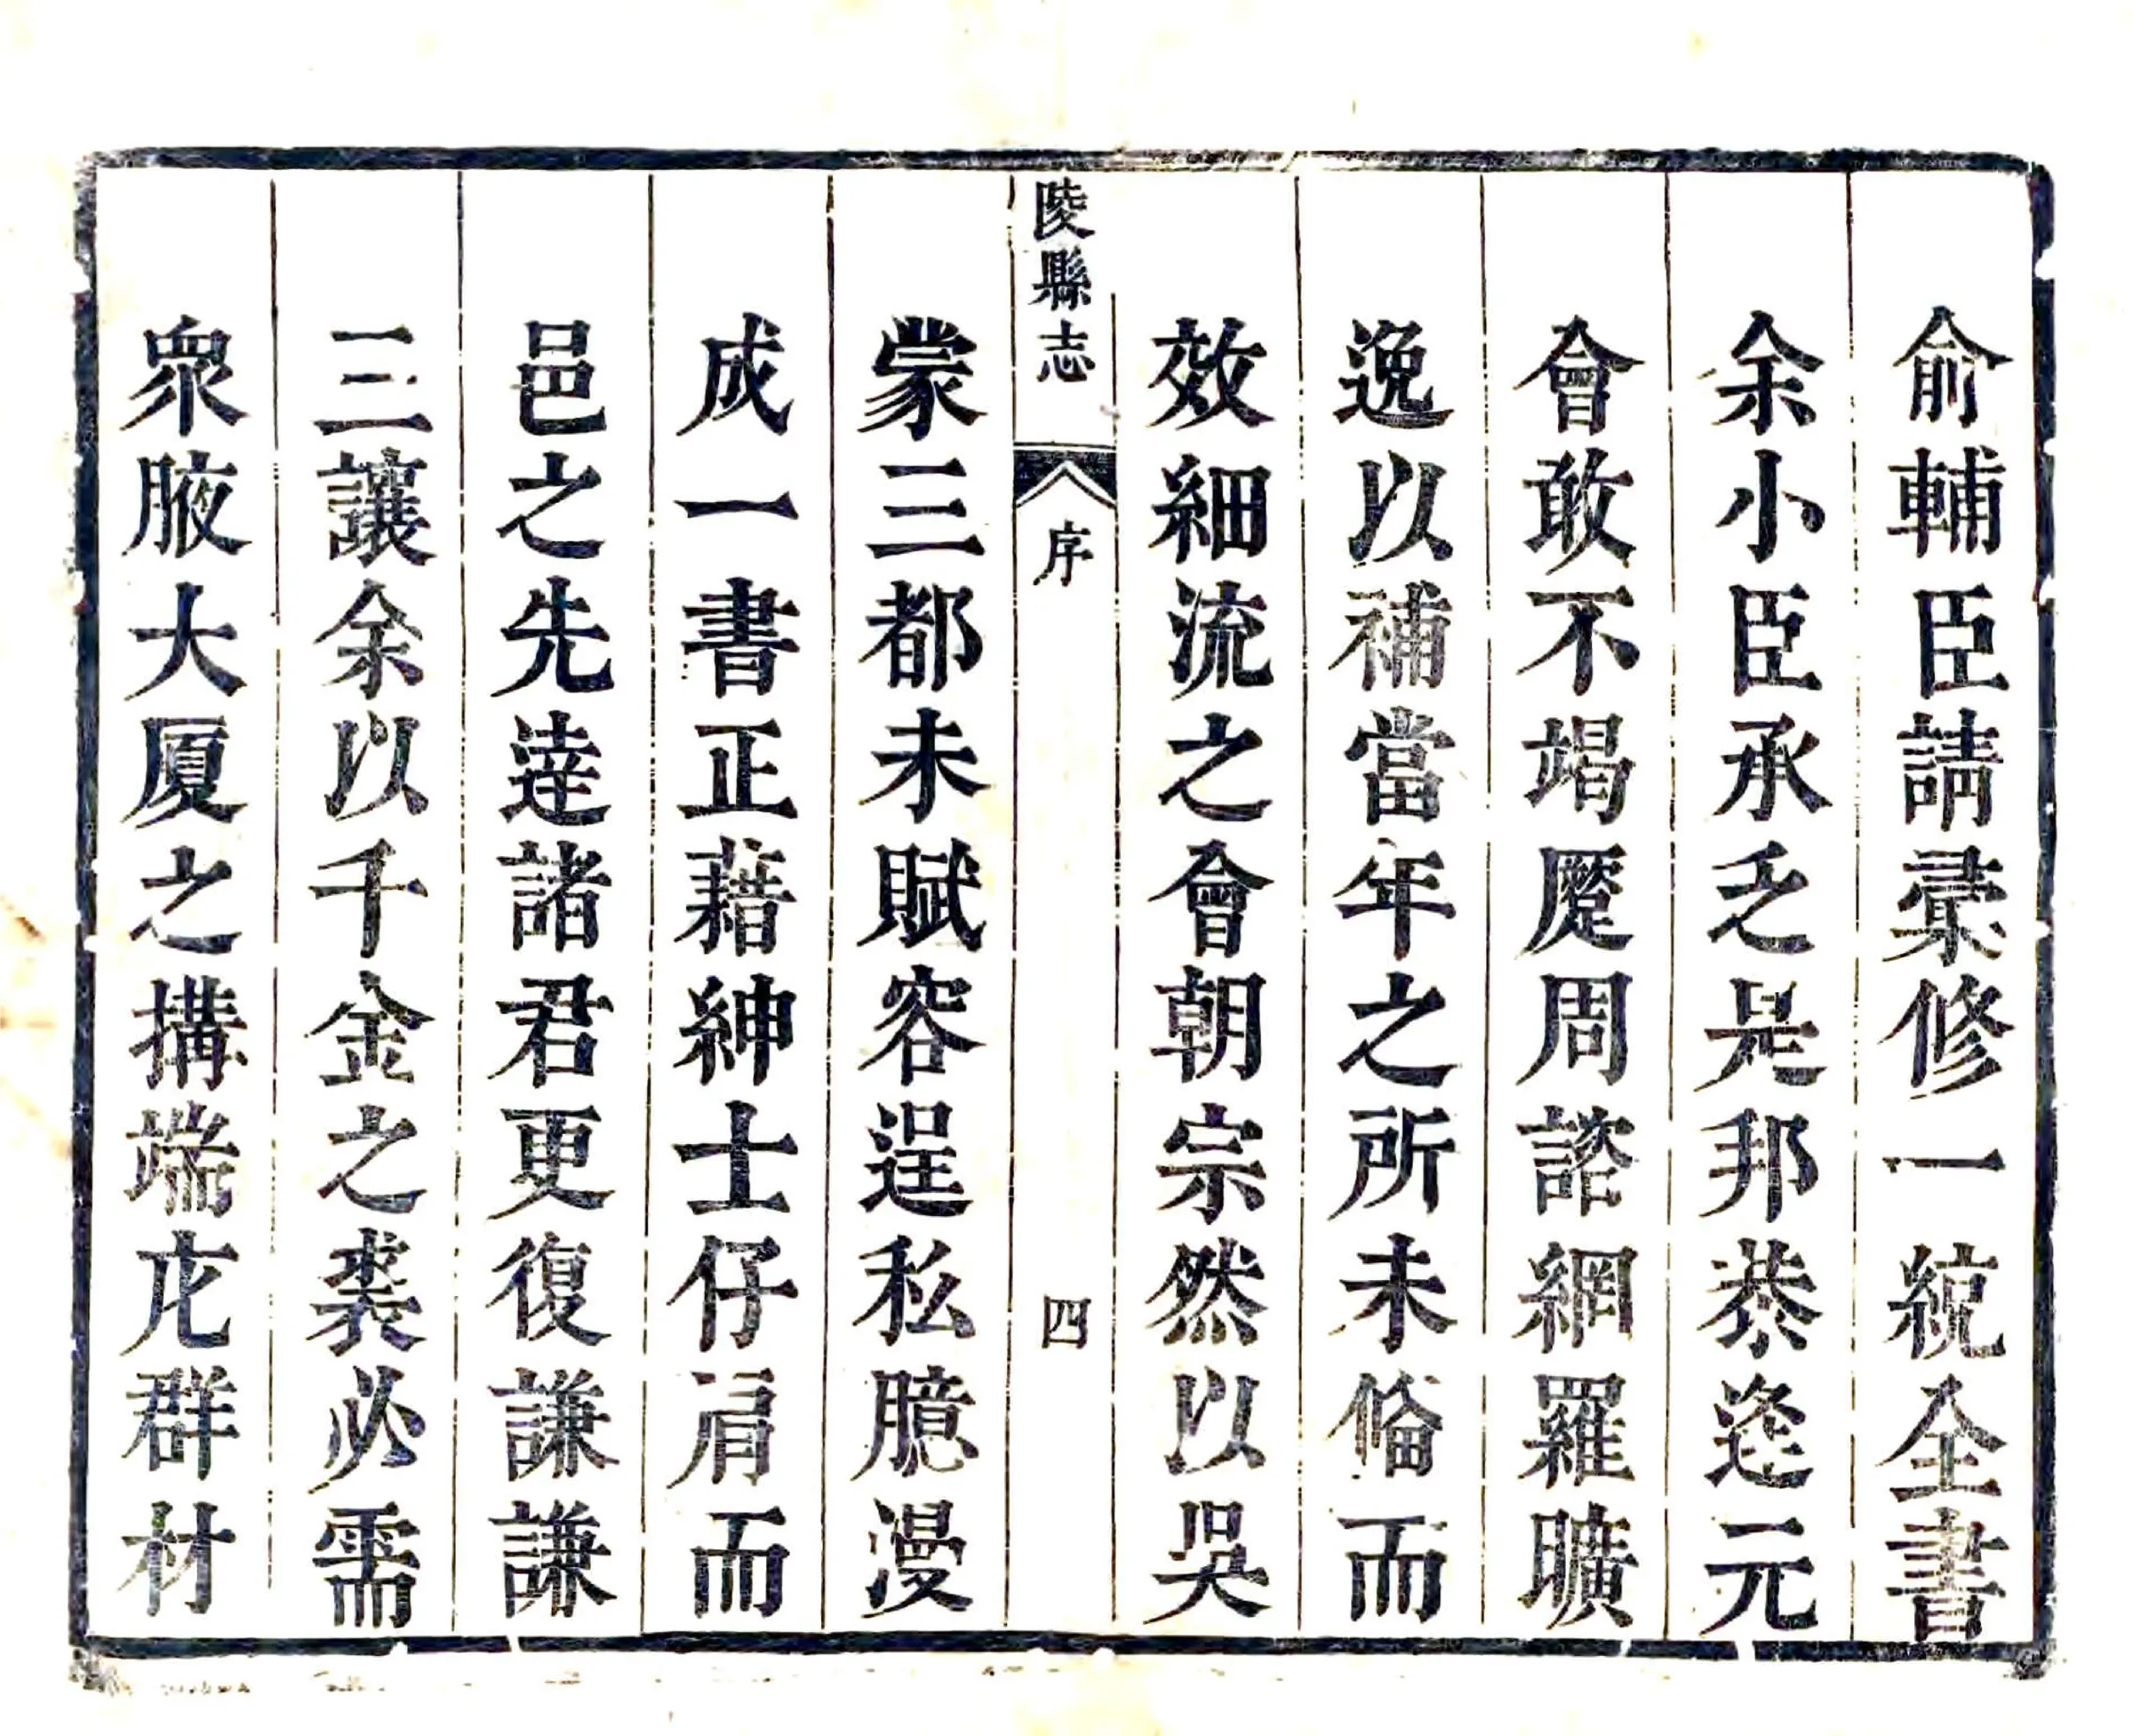 俞輔臣請彚修一統全書
余小臣承乏是邦恭逄元
會敢不竭蹷周諮網羅曠
逸以補當年之所未偹而
效細流之會朝宗然以吳
陵縣志
序
四
蒙三都未賦容逞私臆漫
成一書正藉紳士仔肩而
邑之先逹諸君更復謙謙
三讓余以千金之裘必需
衆腋大厦之搆端庀群材